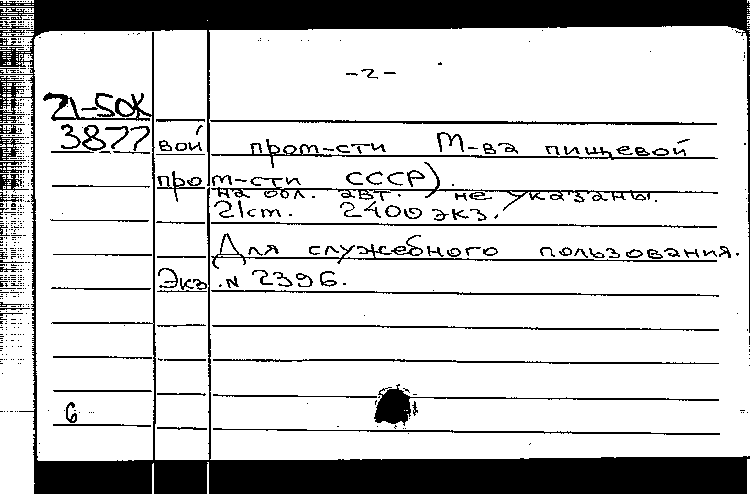 -2-
21-50к
3877 вой пром-сти М-ва пищевой
пром-сти СССР).
на обл. авт. не указаны.
21 ст. 2400 экз.
Для служебного пользования.
Экз. N 2396.
6